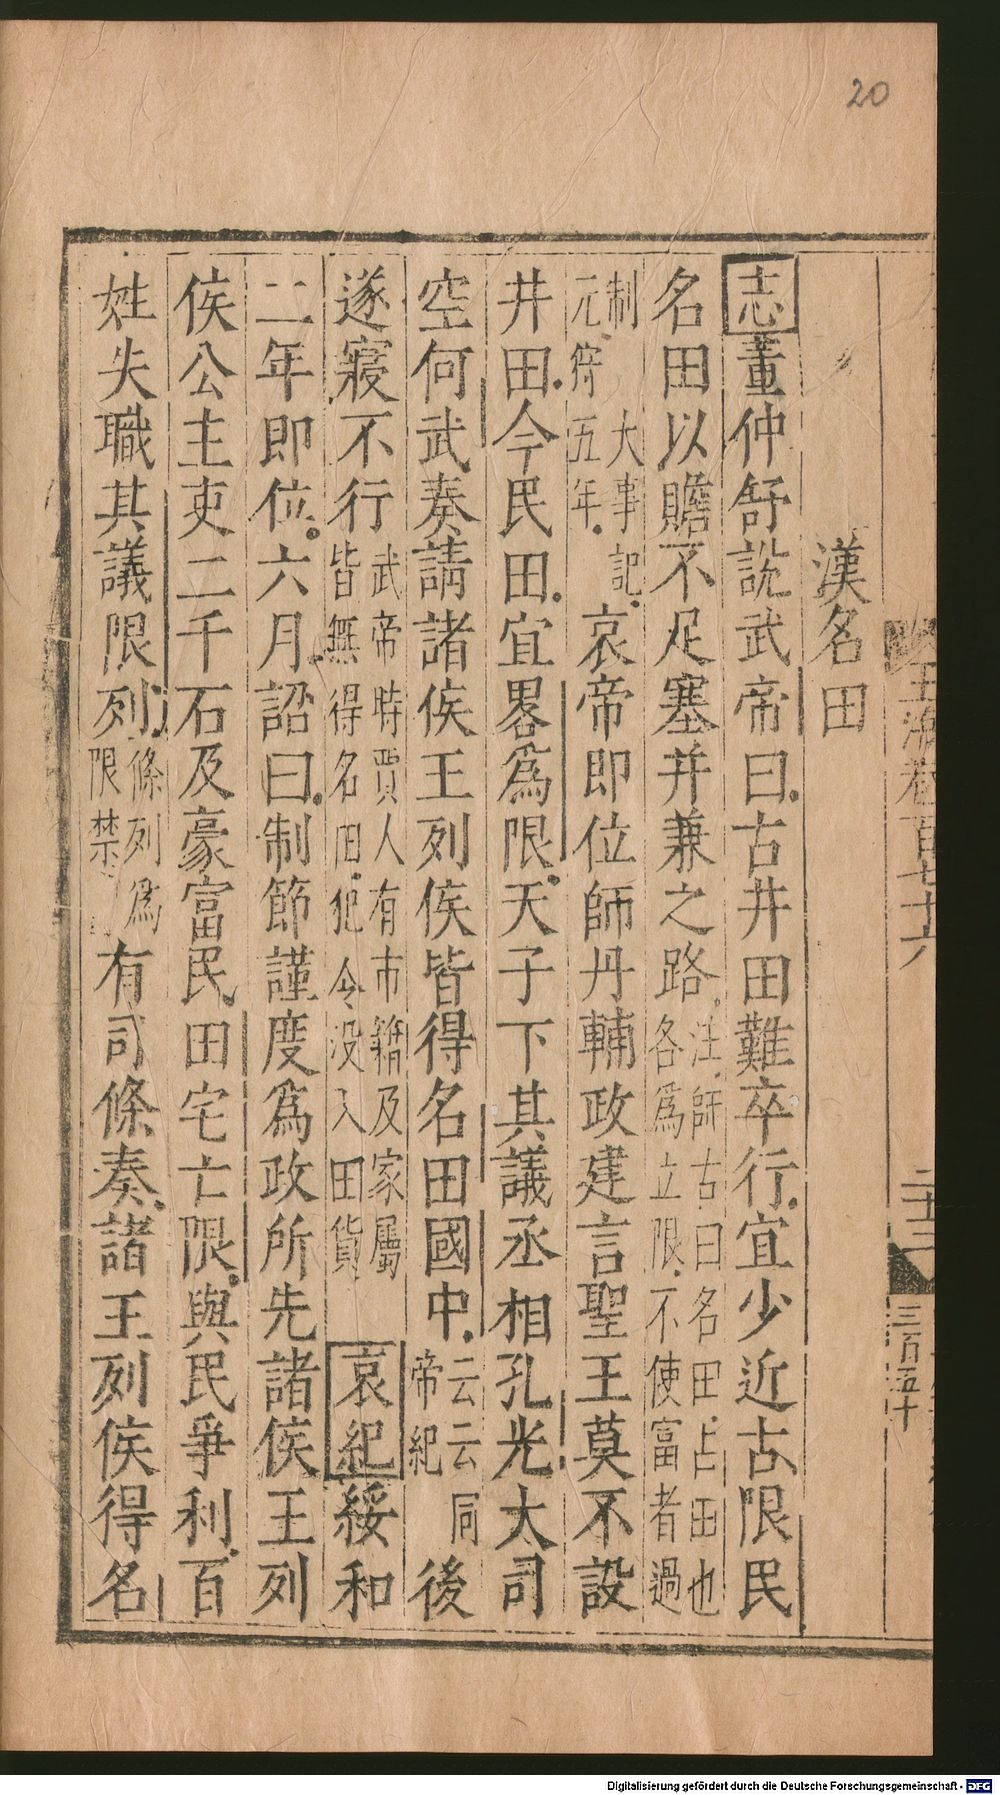 20
玉海卷百七十六
二十三
三百五十
漢名田
志董仲舒說武帝曰古井田難卒行宜少近古限民
名田以贍不足塞并兼之路注師古曰名田占田也各爲立限不使富者過
制元狩五年大事記哀帝即位師丹輔政建言聖王莫不設
井田今民田宜畧爲限天子下其議丞相孔光大司
空何武奏請諸侯王列侯皆得名田國中云云同帝紀後
遂寢不行武帝時賈人有市籍及家屬皆無得名田犯令没入田貨哀紀綏和
二年即位六月詔曰制節謹度爲政所先諸侯王列
侯公主吏二千石及豪富民田宅亡限與民爭利百
姓失職其議限列條列爲限禁有司條奏諸王列侯得名
Digitalisierung gefördert durch die Deutsche Forschungsgemeinschaft - DFG